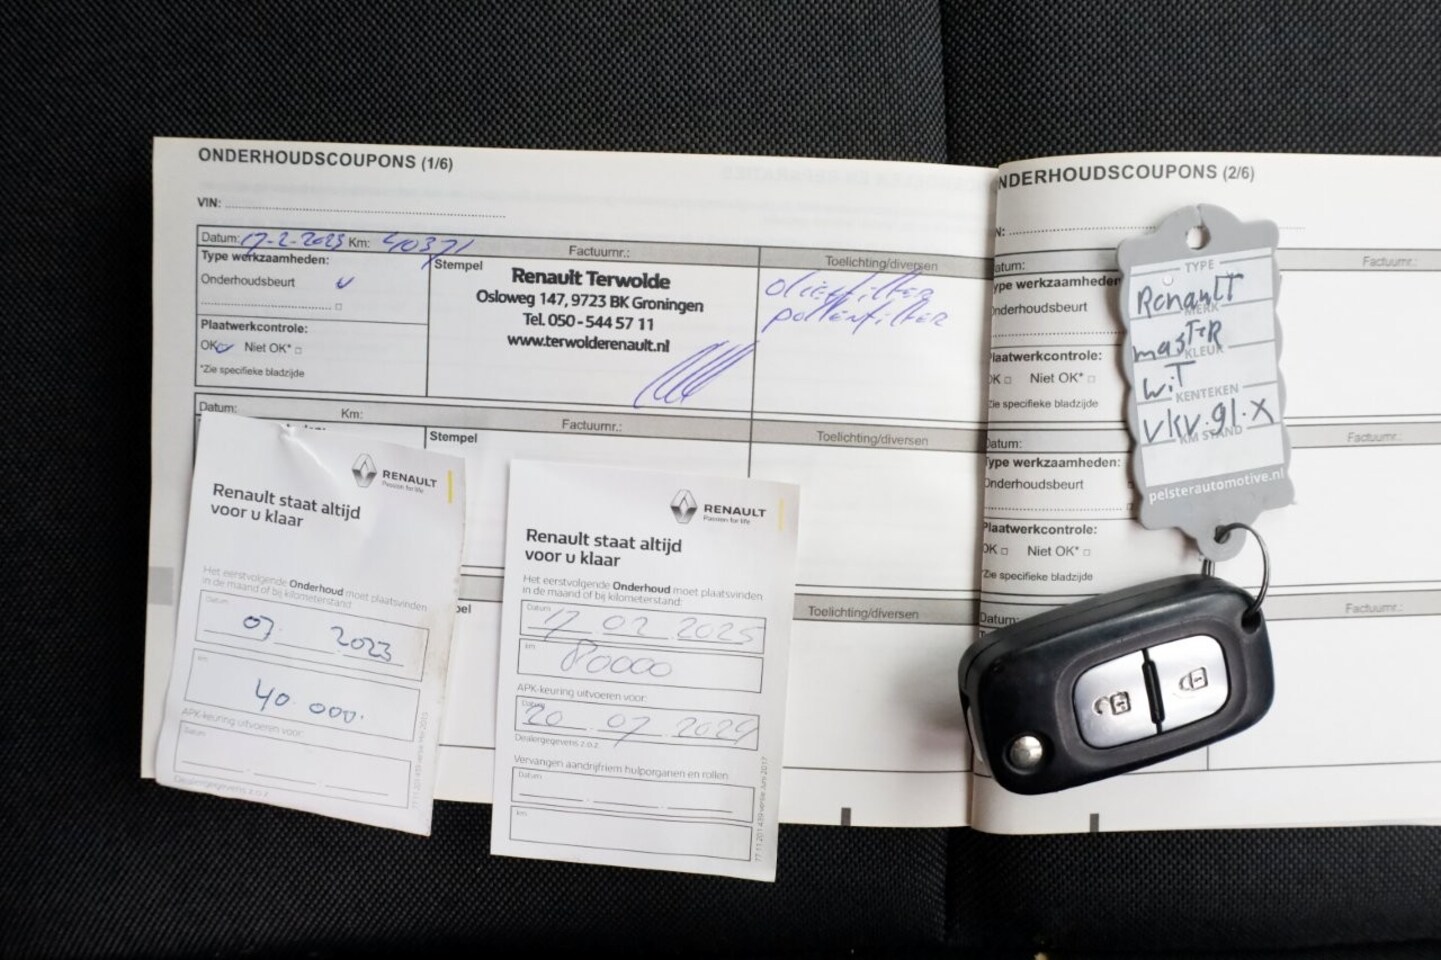 ONDERHOUDSCOUPONS (1/6)
VIN:
Datum: 17-2-2023 Km: 40371 Factuurnr.:
Type werkzaamheden:
Onderhoudsbeurt
Plaatwerkcontrole:
OK Niet OK*
*Zie specifieke bladzijde
Stempel
Renault Terwolde
Osloweg 147, 9723 BK Groningen
Tel. 050 - 544 57 11
www.terwolderenault.nl
Toelichting/diversen
oliefilter
pollenfilter
Datum: Km: Factuurnr.:
Stempel
Toelichting/diversen
Toelichting/diversen
RENAULT
Passion for life
Renault staat altijd
voor u klaar
Het eerstvolgende Onderhoud moet plaatsvinden
in de maand of bij kilometerstand:
Datum
07 2023
km
40.000.
APK-keuring uitvoeren voor:
Datum
RENAULT
Passion for life
Renault staat altijd
voor u klaar
Het eerstvolgende Onderhoud moet plaatsvinden
in de maand of bij kilometerstand:
Datum
17 02 2025
km
80000
APK-keuring uitvoeren voor:
Datum
20 07 2024
Dealergegevens z.o.z.
Vervangen aandrijfriem hulporganen en rollen
Datum
km
77 11 201 439 versie Juni 2017
NDERHOUDSCOUPONS (2/6)
N:
atum:
Factuurnr.:
ype werkzaamheden
nderhoudsbeurt
laatwerkcontrole:
OK Niet OK*
Zie specifieke bladzijde
Datum:
Factuurnr.:
Type werkzaamheden:
Onderhoudsbeurt
Plaatwerkcontrole:
OK Niet OK*
*Zie specifieke bladzijde
Datum:
Factuurnr.:
TYPE
Renault
MERK
master
KLEUR
wit
KENTEKEN
vkv.91.x
KM STAND
pelsterautomotive.nl